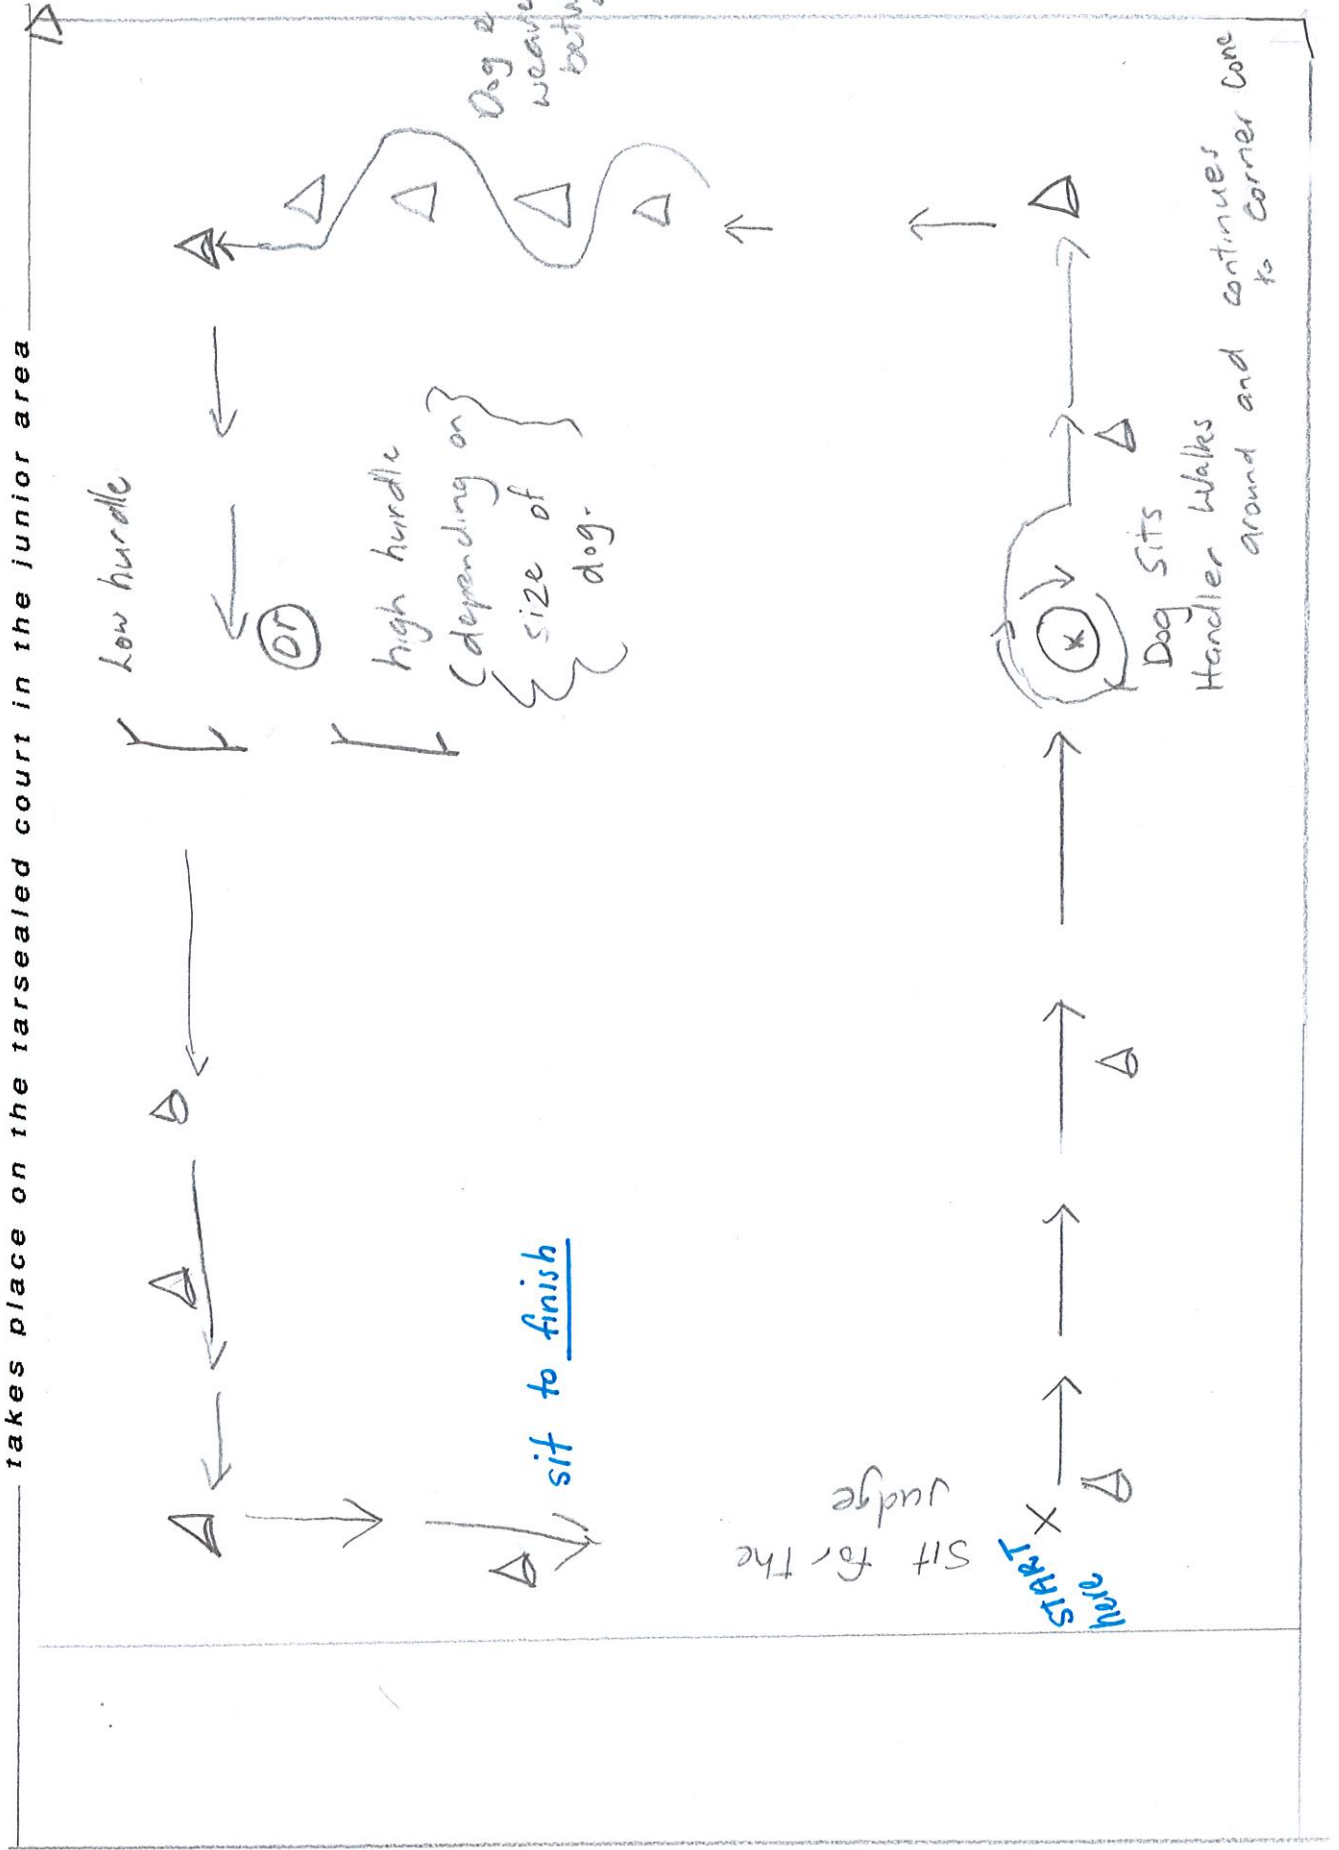 takes place on the tarsealed court in the junior area
Low hurdle
or
high hurdle
(depending on
size of
dog.
Dog &
weave
sit to finish
Sit for the
Judge
START
here
Dog Sits
Handler Walks
around and continues
to corner cone